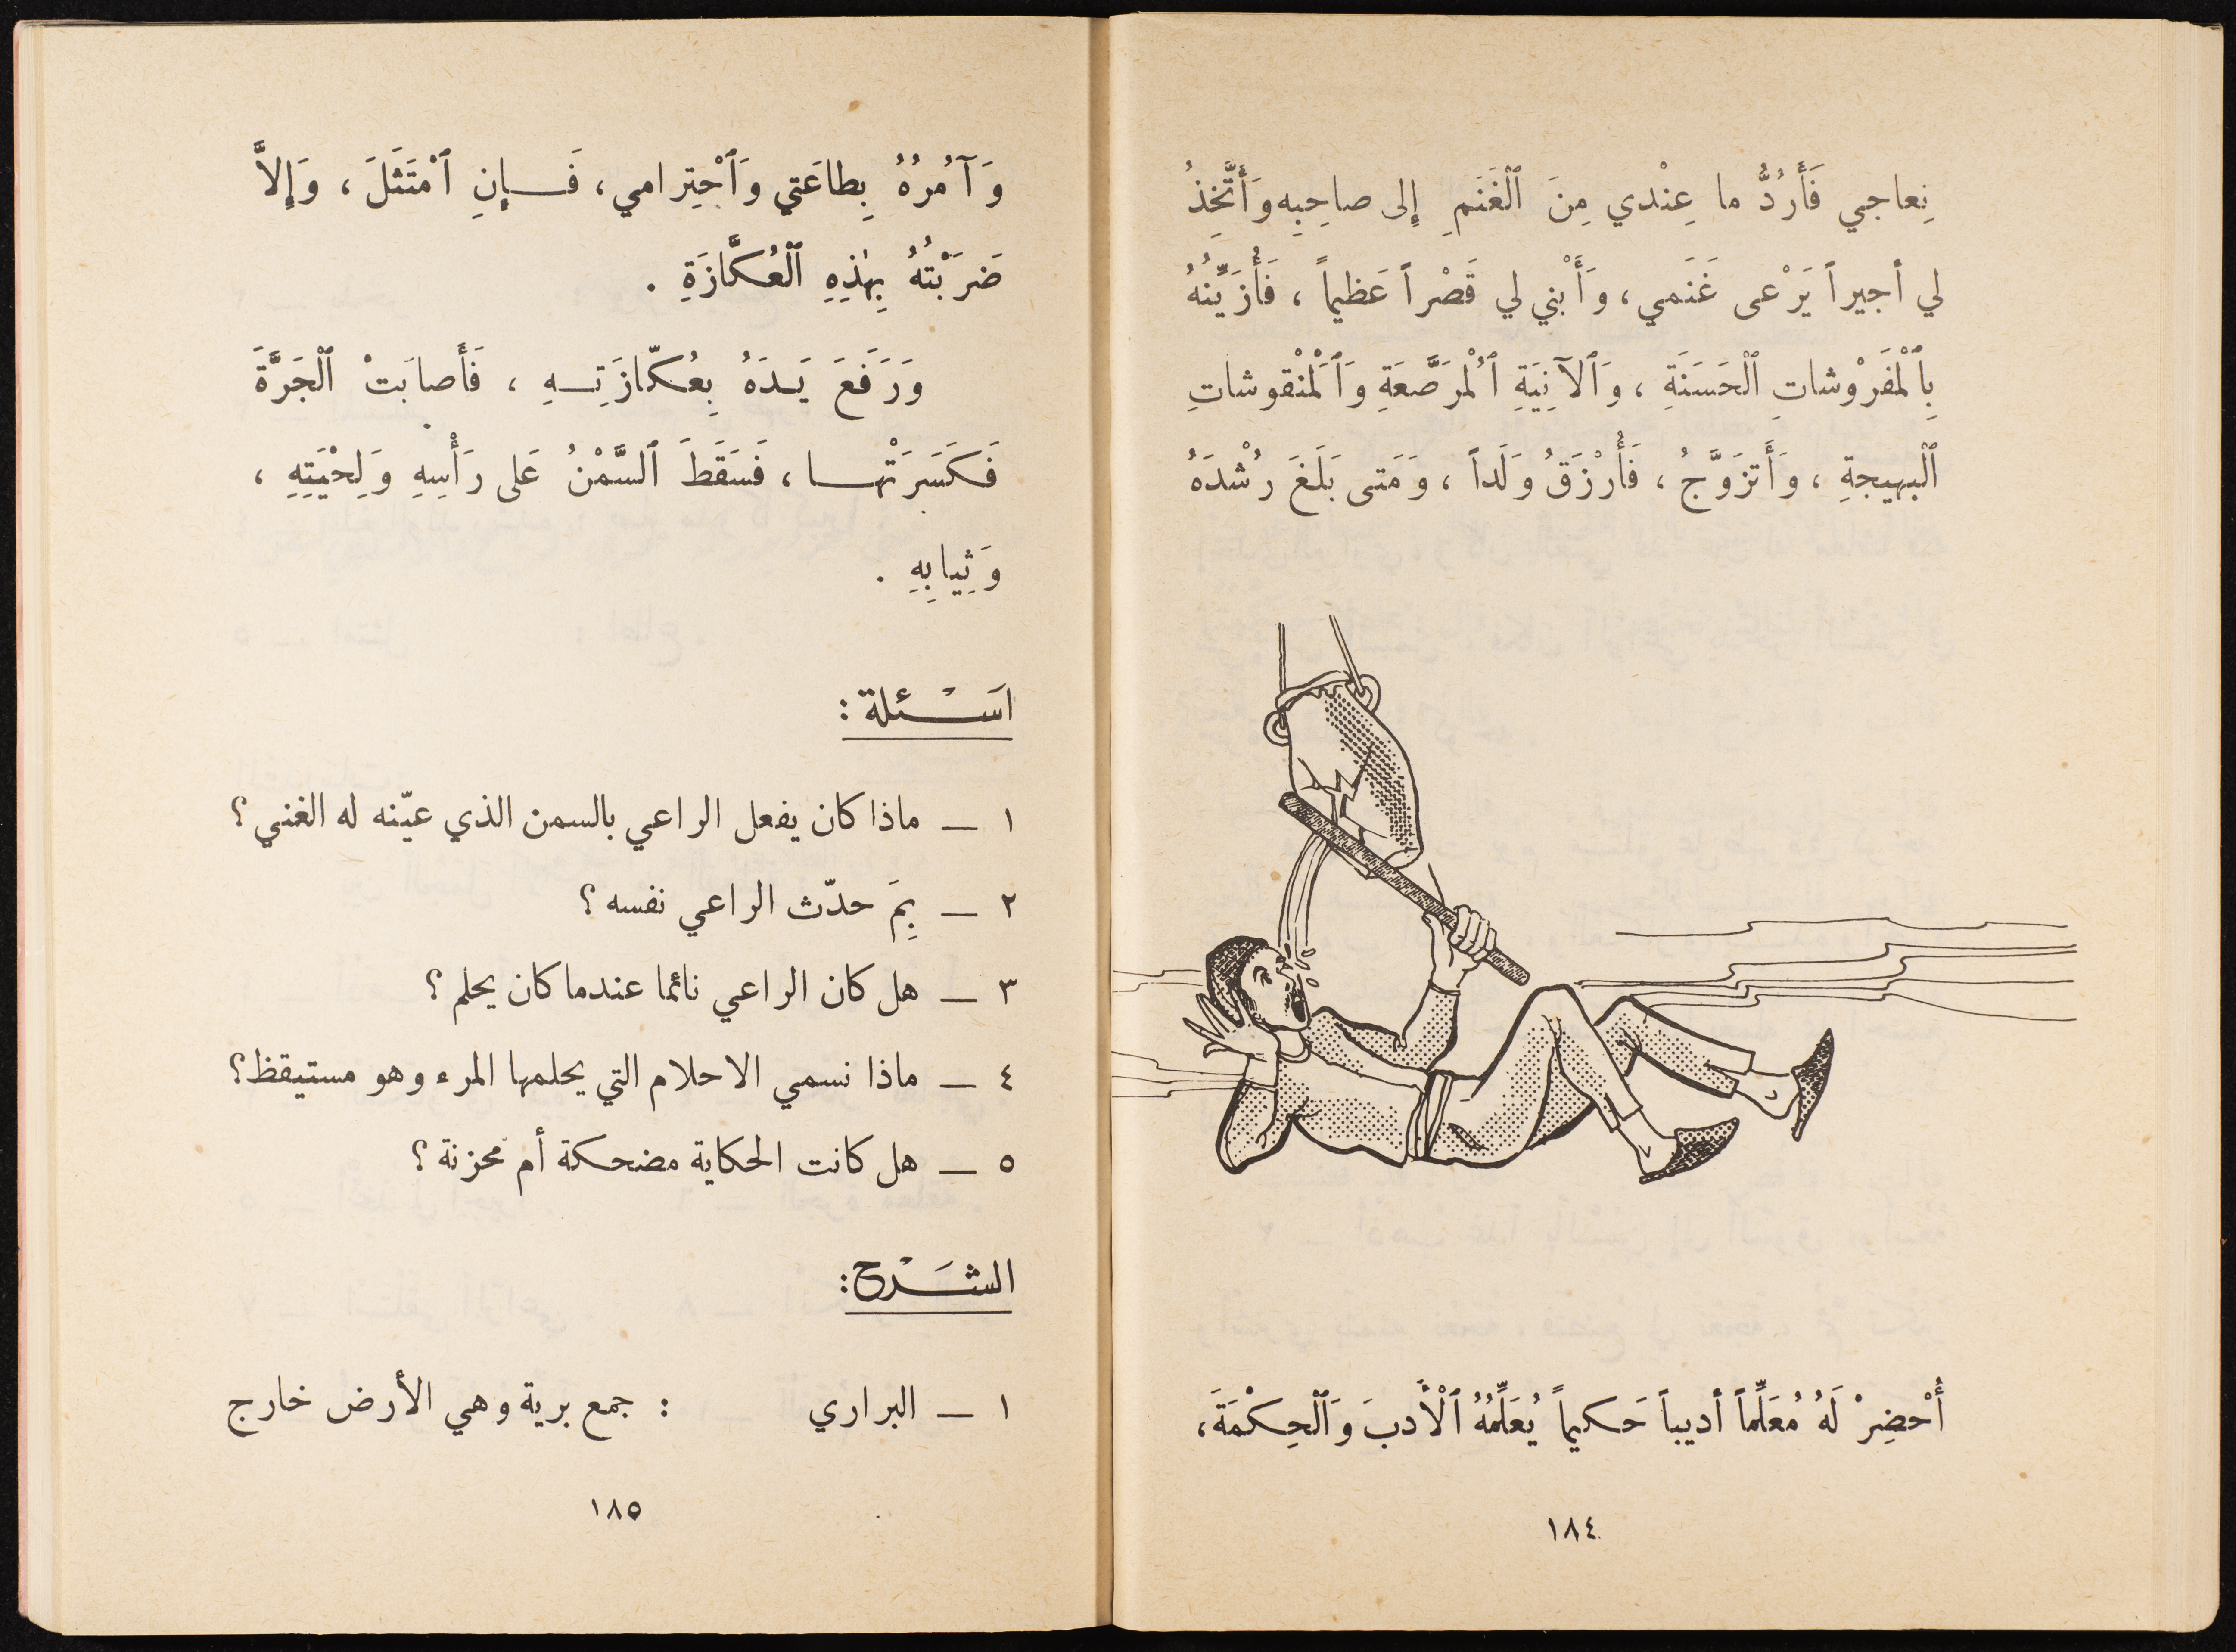 نِعاجي فَأَرُدُّ ما عِنْدي مِنَ ٱلْغَنَمِ إِلى صاحِبِه وَأَتَّخِذُ
لي أجيراً يَرْعى غَنَمي، وَأَبْني لي قَصْراً عَظيماً، فَأُزَيِّنُهُ
بِٱلْمَفَرْوُشاتِ ٱلْحَسَنَةِ، وَٱلآنِيَةِ ٱلْمُرَصَّعَةِ وَٱلْمَنْقوشاتِ
ٱلْبهيجةِ، وَأَتَزَوَّجُ، فَأُرْزَقُ وَلَداً، وَمَتى بَلَغَ رُشْدَهُ
أُحْضِرْ لَهُ مُعَلِّماً أديباً حَكيماً يُعَلِّمُهُ ٱلْأَدبَ وَٱلْحِكْمَةَ،
١٨٤
وَآمُرُهُ بِطاعَتي وَٱحْتِرامي، فَإِنِ ٱمْتَثَلَ، وَإِلاَّ
ضَرَبْتُهُ بِهٰذِهِ ٱلْعُكَّازَةِ.
وَرَفَعَ يَدَهُ بِعُكّازَتِهِ، فَأَصابَتْ ٱلْجَرَّةَ
فَكَسَرَتْها، فَسَقَطَ ٱلسَّمْنُ عَلى رَأْسِهِ وَلِحْيَتِهِ،
وَثِيابِهِ.
اَسْئلة:
١ — ماذا كان يفعل الراعي بالسمن الذي عيّنه له الغني؟
٢ — بِمَ حدّث الراعي نفسه؟
٣ — هل كان الراعي نائما عندما كان يحلم؟
٤ — ماذا نسمي الاحلام التي يحلمها المرء وهو مستيقظ؟
٥ — هل كانت الحكاية مضحكة أم محزنة؟
الشَرْح:
١ — البراري : جمع برية وهي الأرض خارج
١٨٥